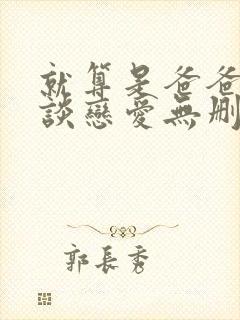 就算是爸爸
談戀愛無刪
郭長秀